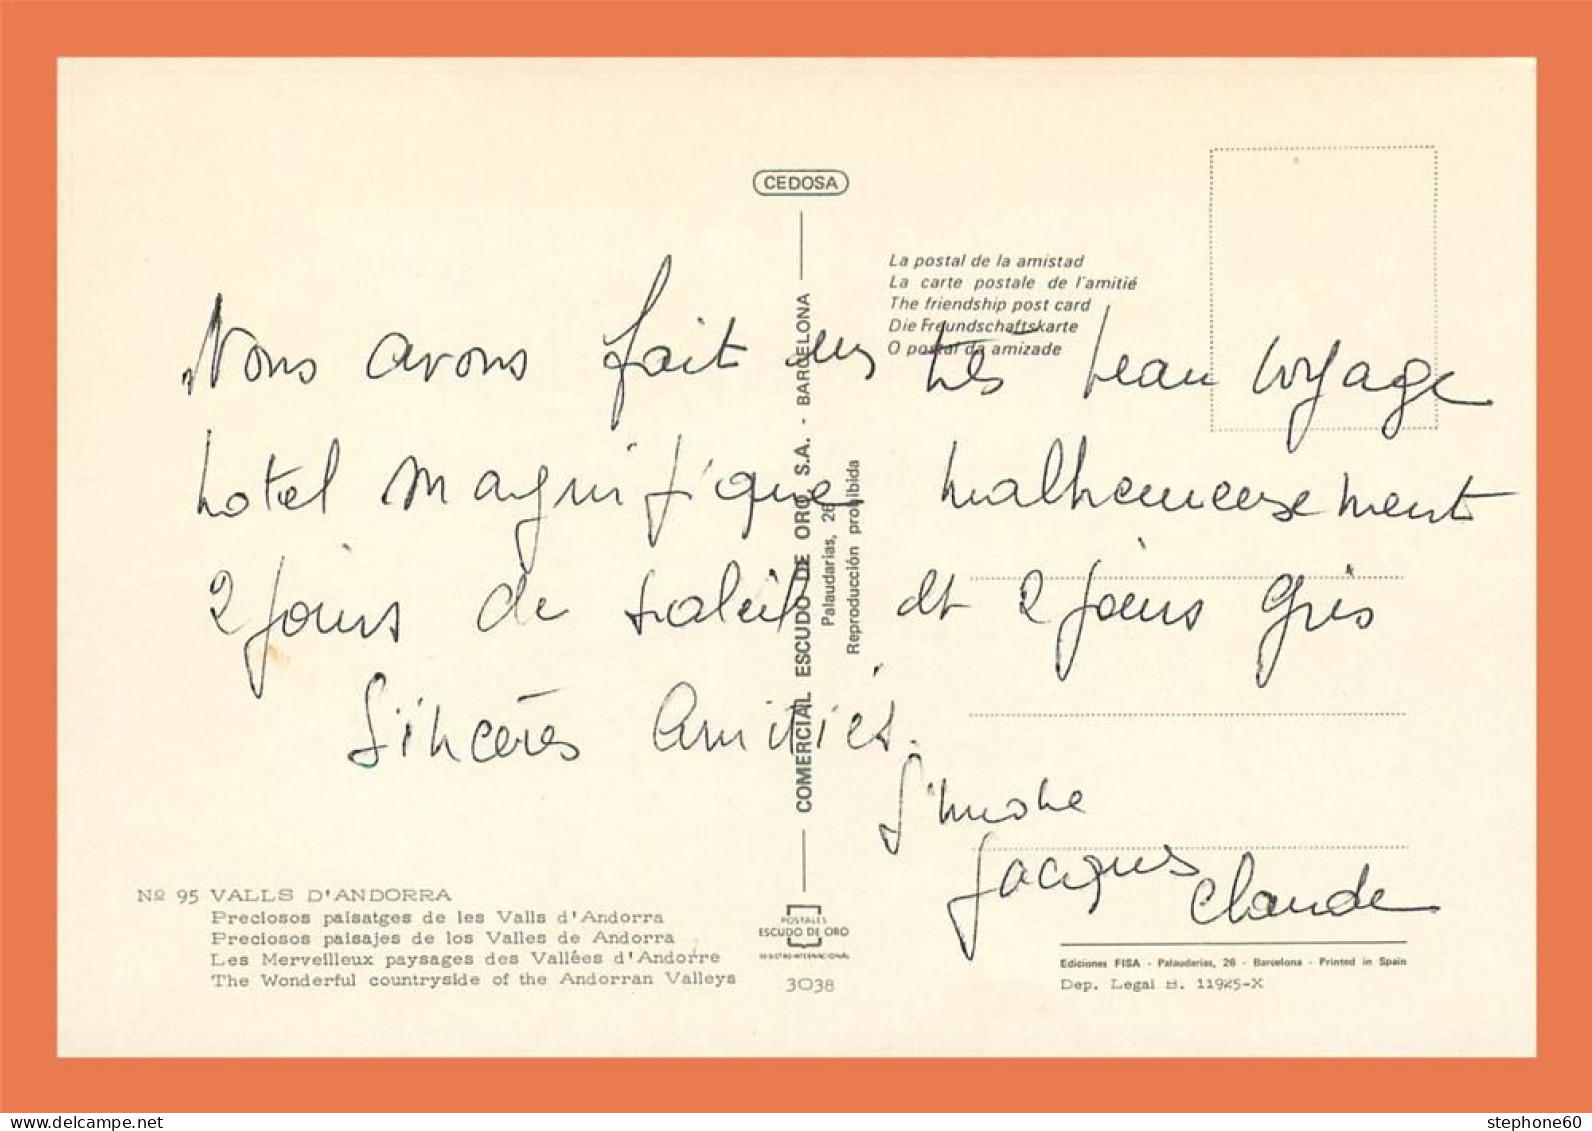 CEDOSA
La postal de la amistad
La carte postale de l'amitié
The friendship post card
Die Freundschaftskarte
O postal da amizade
Nous avons fait un très beau voyage
hotel magnifique malheureusement
2 jours de soleil et 2 jours gris
Sincères Amitiés.
Simone
Jacques
Claude
COMERCIAL ESCUDO DE ORO, S.A. - BARCELONA
Palaudarias, 26
Reproducción prohibida
Nº 95 VALLS D'ANDORRA
Preciosos paisatges de les Valls d'Andorra
Preciosos paisajes de los Valles de Andorra
Les Merveilleux paysages des Vallées d'Andorre
The Wonderful countryside of the Andorran Valleys
POSTALES
ESCUDO DE ORO
REGISTRO INTERNACIONAL
3038
Ediciones FISA - Palaudarias, 26 - Barcelona - Printed in Spain
Dep. Legal B. 11925-X
stephone60